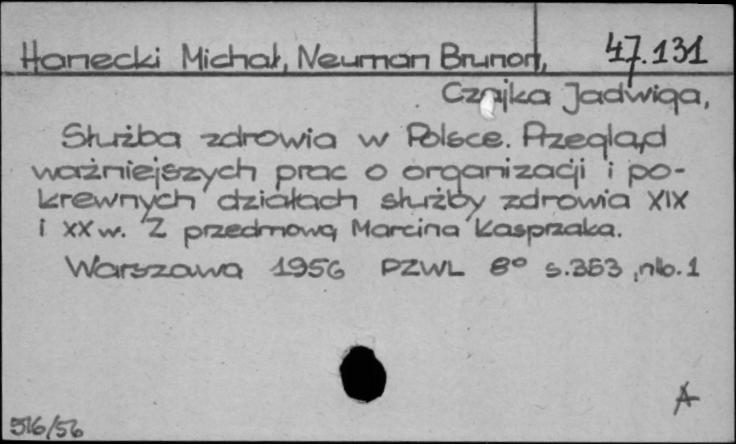 Hanecki Michał, Neuman Brunon, 47.131
Czajka Jadwiga,
Służba zdrowia w Polsce. Przegląd
ważniejszych prac o organizacji i po-
krewnych działach służby zdrowia XIX
i XX w. Z przedmową Marcina Kasprzaka.
Warszawa 1956 PZWL 8° s.353, nlb. 1
A
516/56